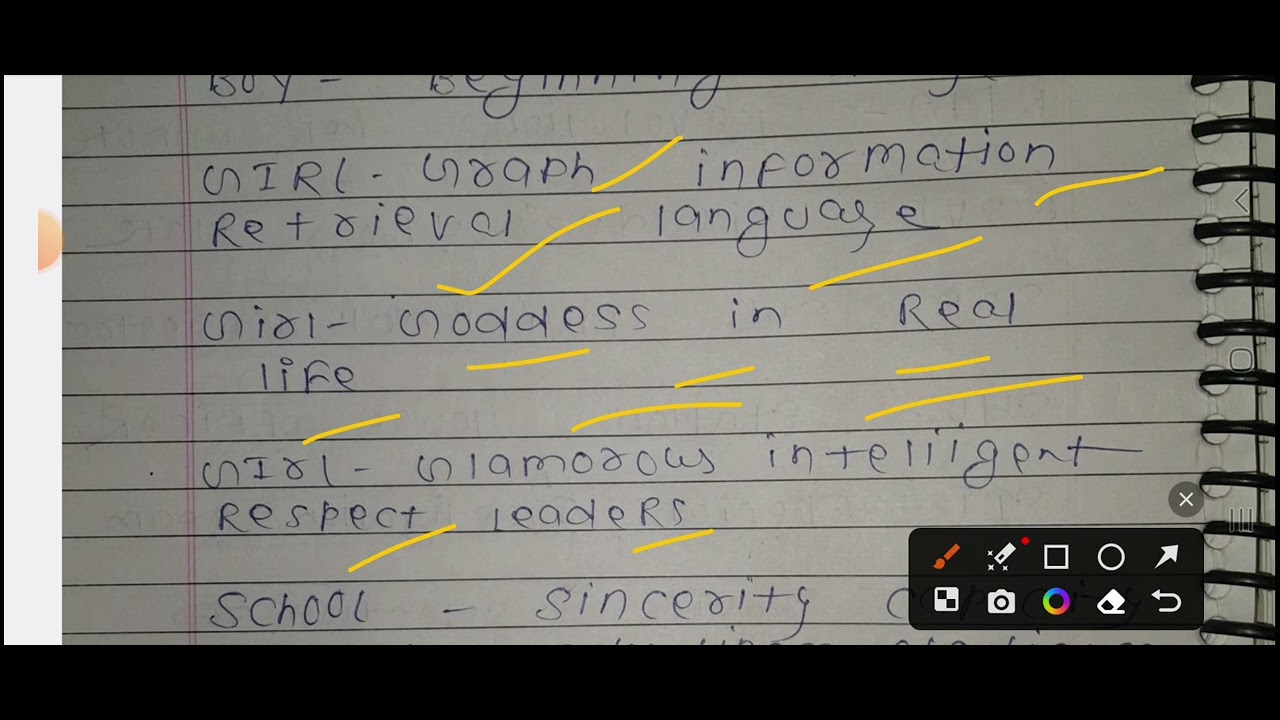 BOY - Beginning
GIRL - Graph information
Retrieval language
Girl - Goddess in Real
life
GIrl - Glamorous intelligent
Respect Leaders
SCHOOL - Sincerity